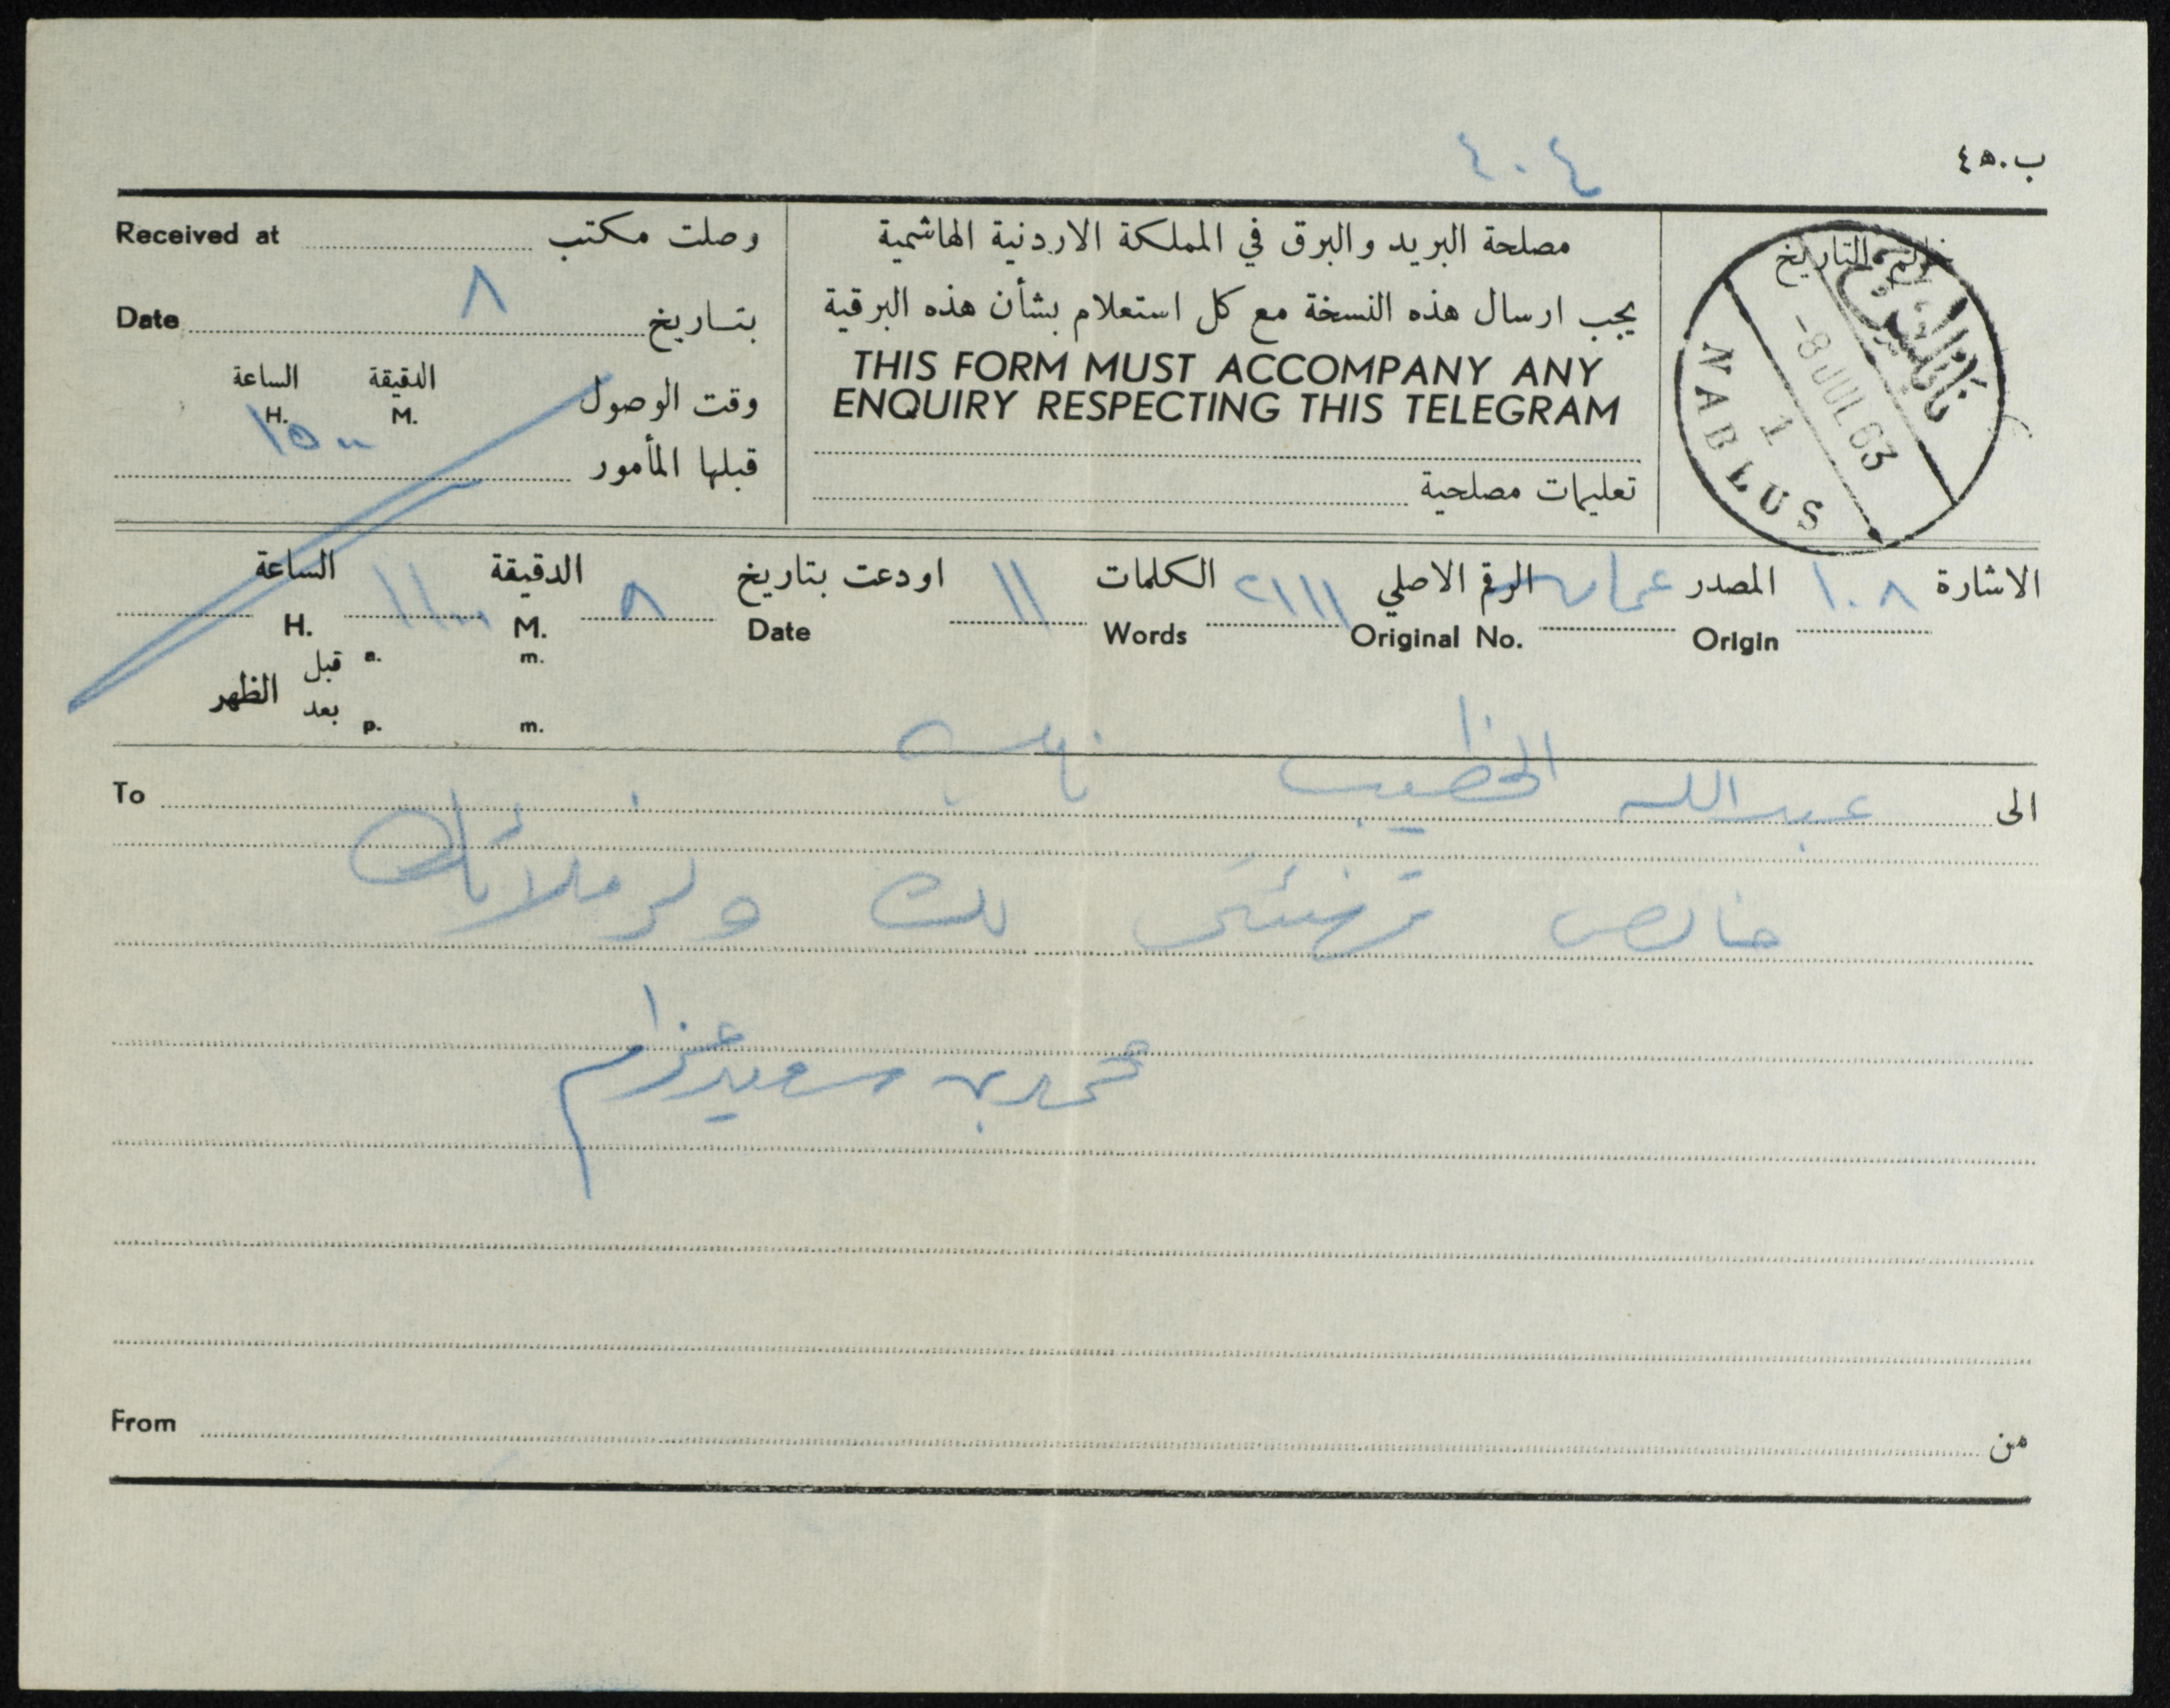 ٤٠٤
ب.ه٤
Received at وصلت مكتب
مصلحة البريد والبرق في المملكة الاردنية الهاشمية
خاتم التاريخ
Date ٨ بتاريخ
يجب ارسال هذه النسخة مع كل استعلام بشأن هذه البرقية
THIS FORM MUST ACCOMPANY ANY
ENQUIRY RESPECTING THIS TELEGRAM
الساعة الدقيقة وقت الوصول
H. M.
١٥٠٠
قبلها المأمور
تعليمات مصلحية
نابلس
-8 JUL 63
1
NABLUS
الاشارة ١٠٨ المصدر عمان الرقم الاصلي ٢١١١ الكلمات ١١ اودعت بتاريخ ٨ الدقيقة ١١٠٠ الساعة
Origin Original No. Words Date M. H.
قبل a. m.
الظهر
بعد p. m.
To الى عبدالله الخطيب نابلس
خالص تهنئتي لك ولزملائك
محمد سعيد عزام
From من